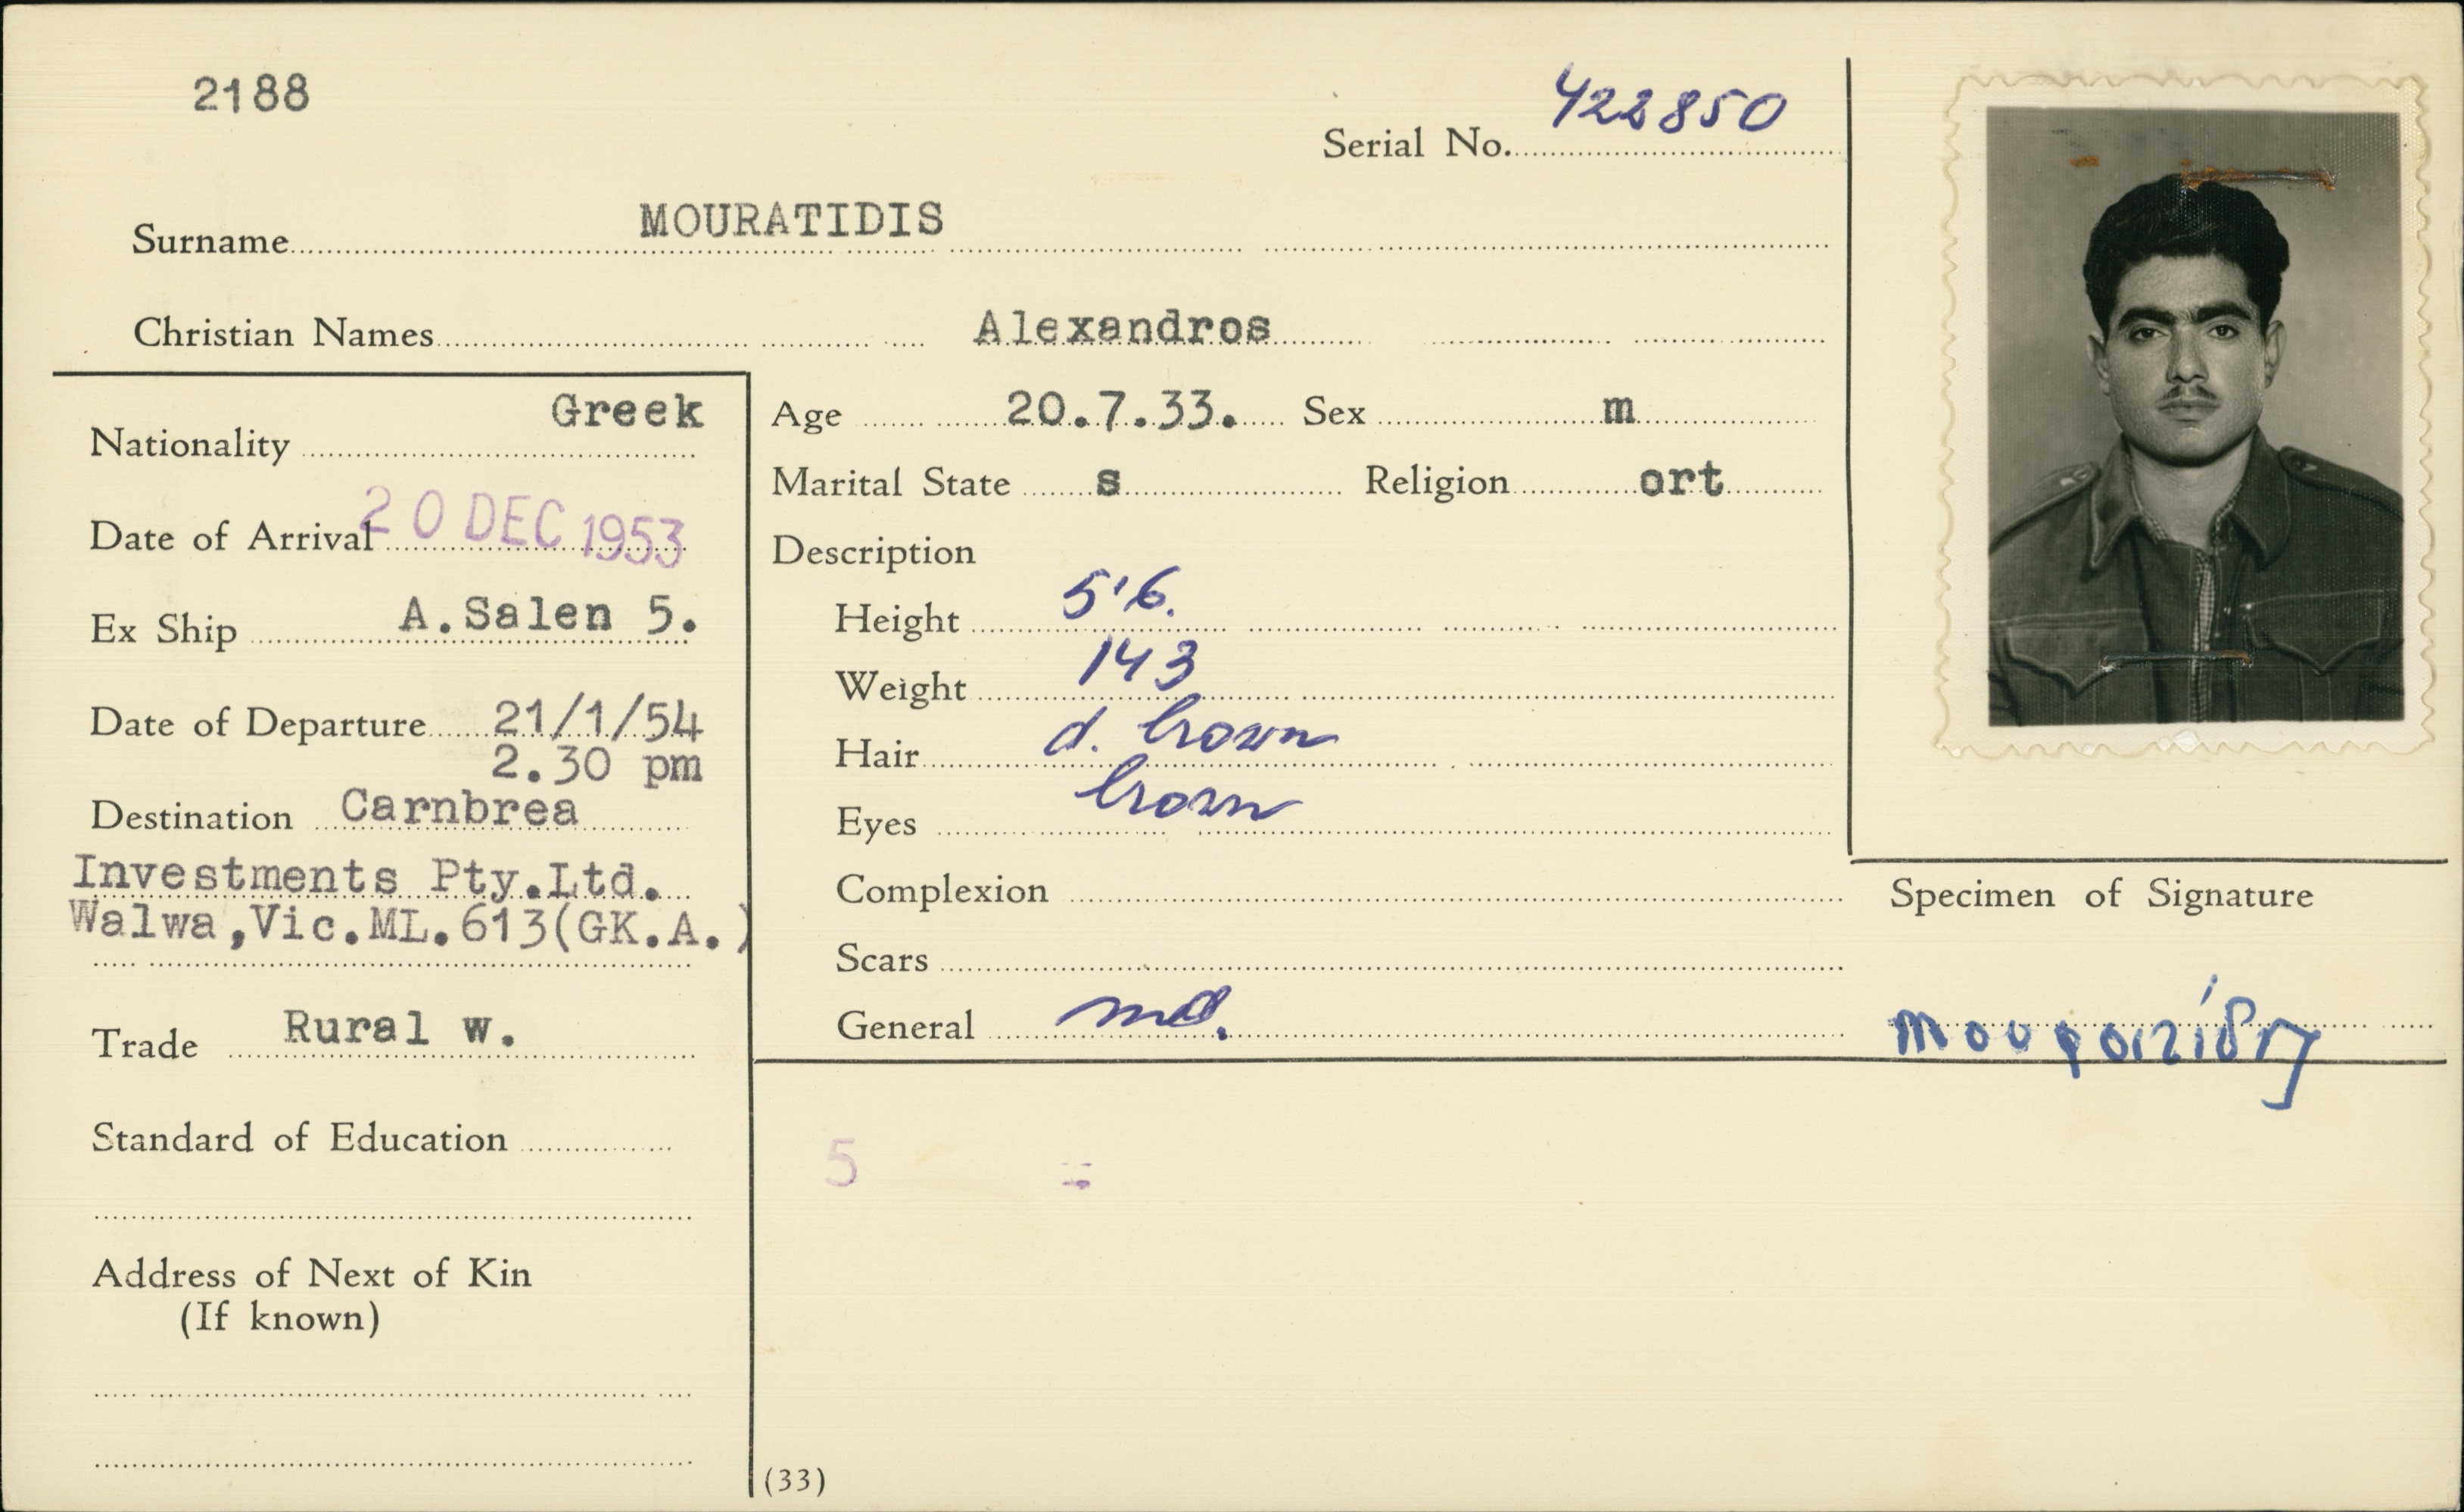 2188
Serial No. 422850
Surname MOURATIDIS
Christian Names Alexandros
Nationality Greek
Date of Arrival 20 DEC 1953
Ex Ship A.Salen 5.
Date of Departure 21/1/54
2.30 pm
Destination Carnbrea
Investments Pty.Ltd.
Walwa,Vic.ML.613(GK.A.)
Trade Rural w.
Standard of Education
Address of Next of Kin
(If known)
Age 20.7.33. Sex m
Marital State s Religion ort
Description
Height 5'6.
Weight 143
Hair d. brown
Eyes brown
Complexion
Scars
General
5
(33)
Specimen of Signature
Μουρατίδη